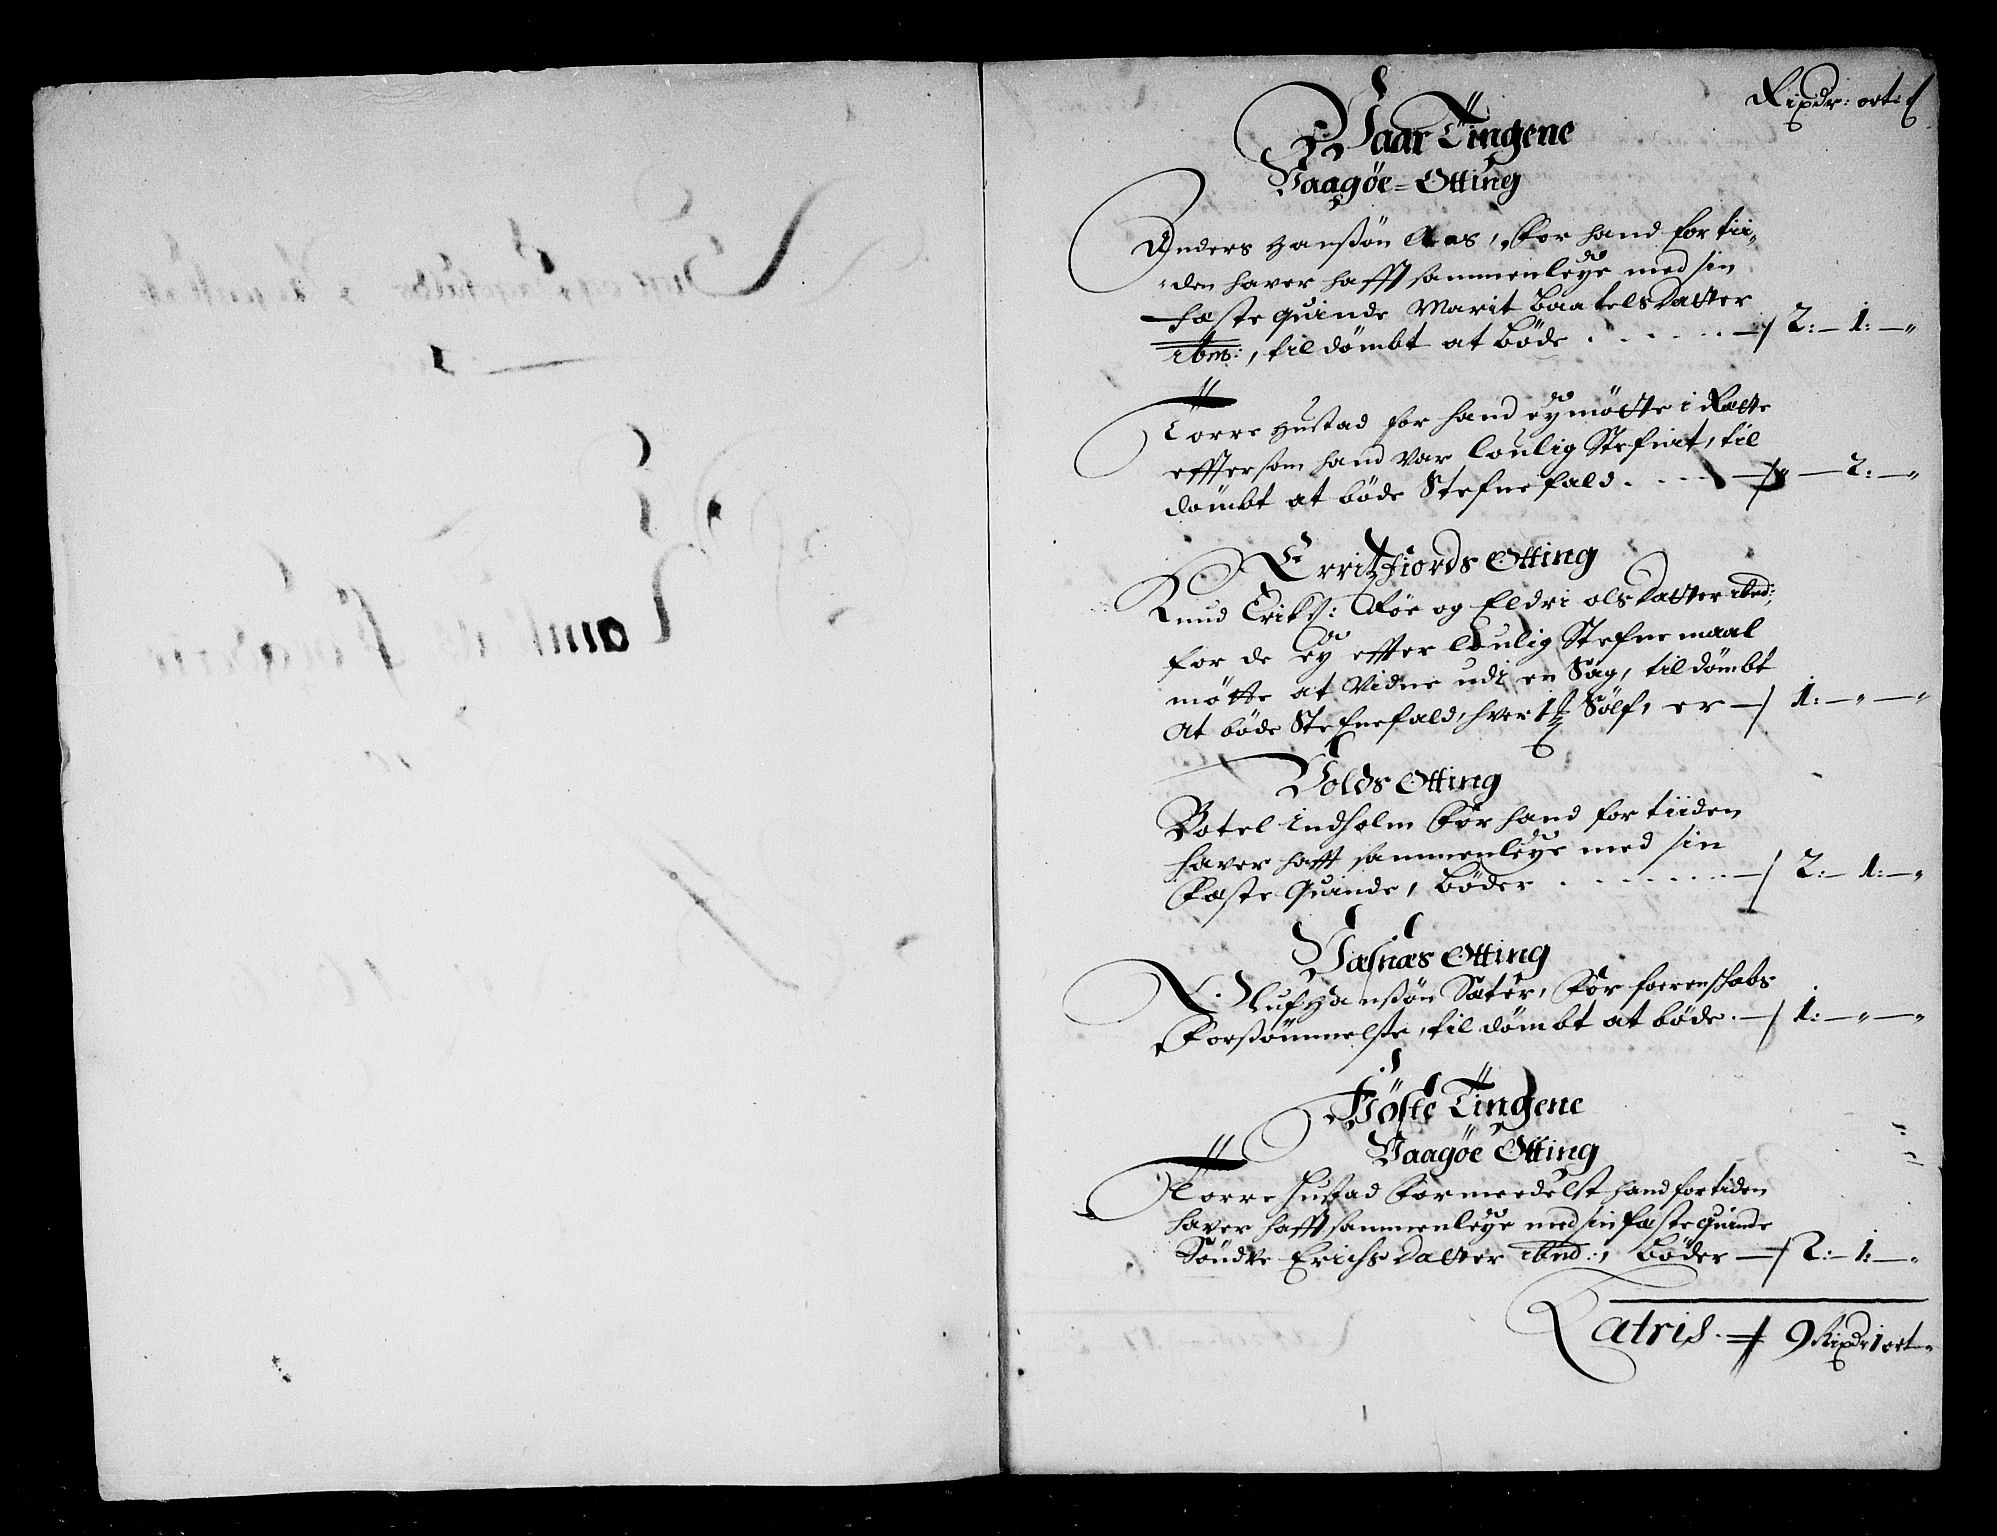 Rixdr: ort: ſ
Vaar Tingene
Vaagøe-Otting
Anders Hanßøn Aas, For hand for tii-
den haver hafft sammenleye med sin
Fæste quinde Marit Baatels datter
ibm:, til dømbt at Bøde . . . . . . 2:— 1:—„
Torre Hustad for hand ey møtte i Rætte
effter som hand var loulig Stefnt, til
dømbt at bøde Stefnefald . . . . „—2:—„
Erritzfiords Otting
Knud Erikß: Røe og Eldri olsdatter ibnd:,
for de ey effter loulig Stefnemaal
møtte at Vidne udi en Sag, til dømbt
At bøde Stefnefald, hver 1 Sølf, er — 1:—„—„
Volds Otting
Botel Indholm For hand for tiiden
haver hafft sammenleye med sin
Fæste Quinde, Bøder . . . . . . . 2:— 1:—„
Næsnæs Otting
Oluf Hanßøn Sater, For foerenskabs
Forsømmelse, til dømbt at bøde . — 1:—„—„
Høste Tingene
Vaagøe Otting
Torre Hustad Formedelst hand for tiden
haver hafft sammenleye med sin fæste quinde
Søndre Erichs datter ibnd:, Bøder — 2:— 1:—„
Latris. 9 Rixdr 1 ort „